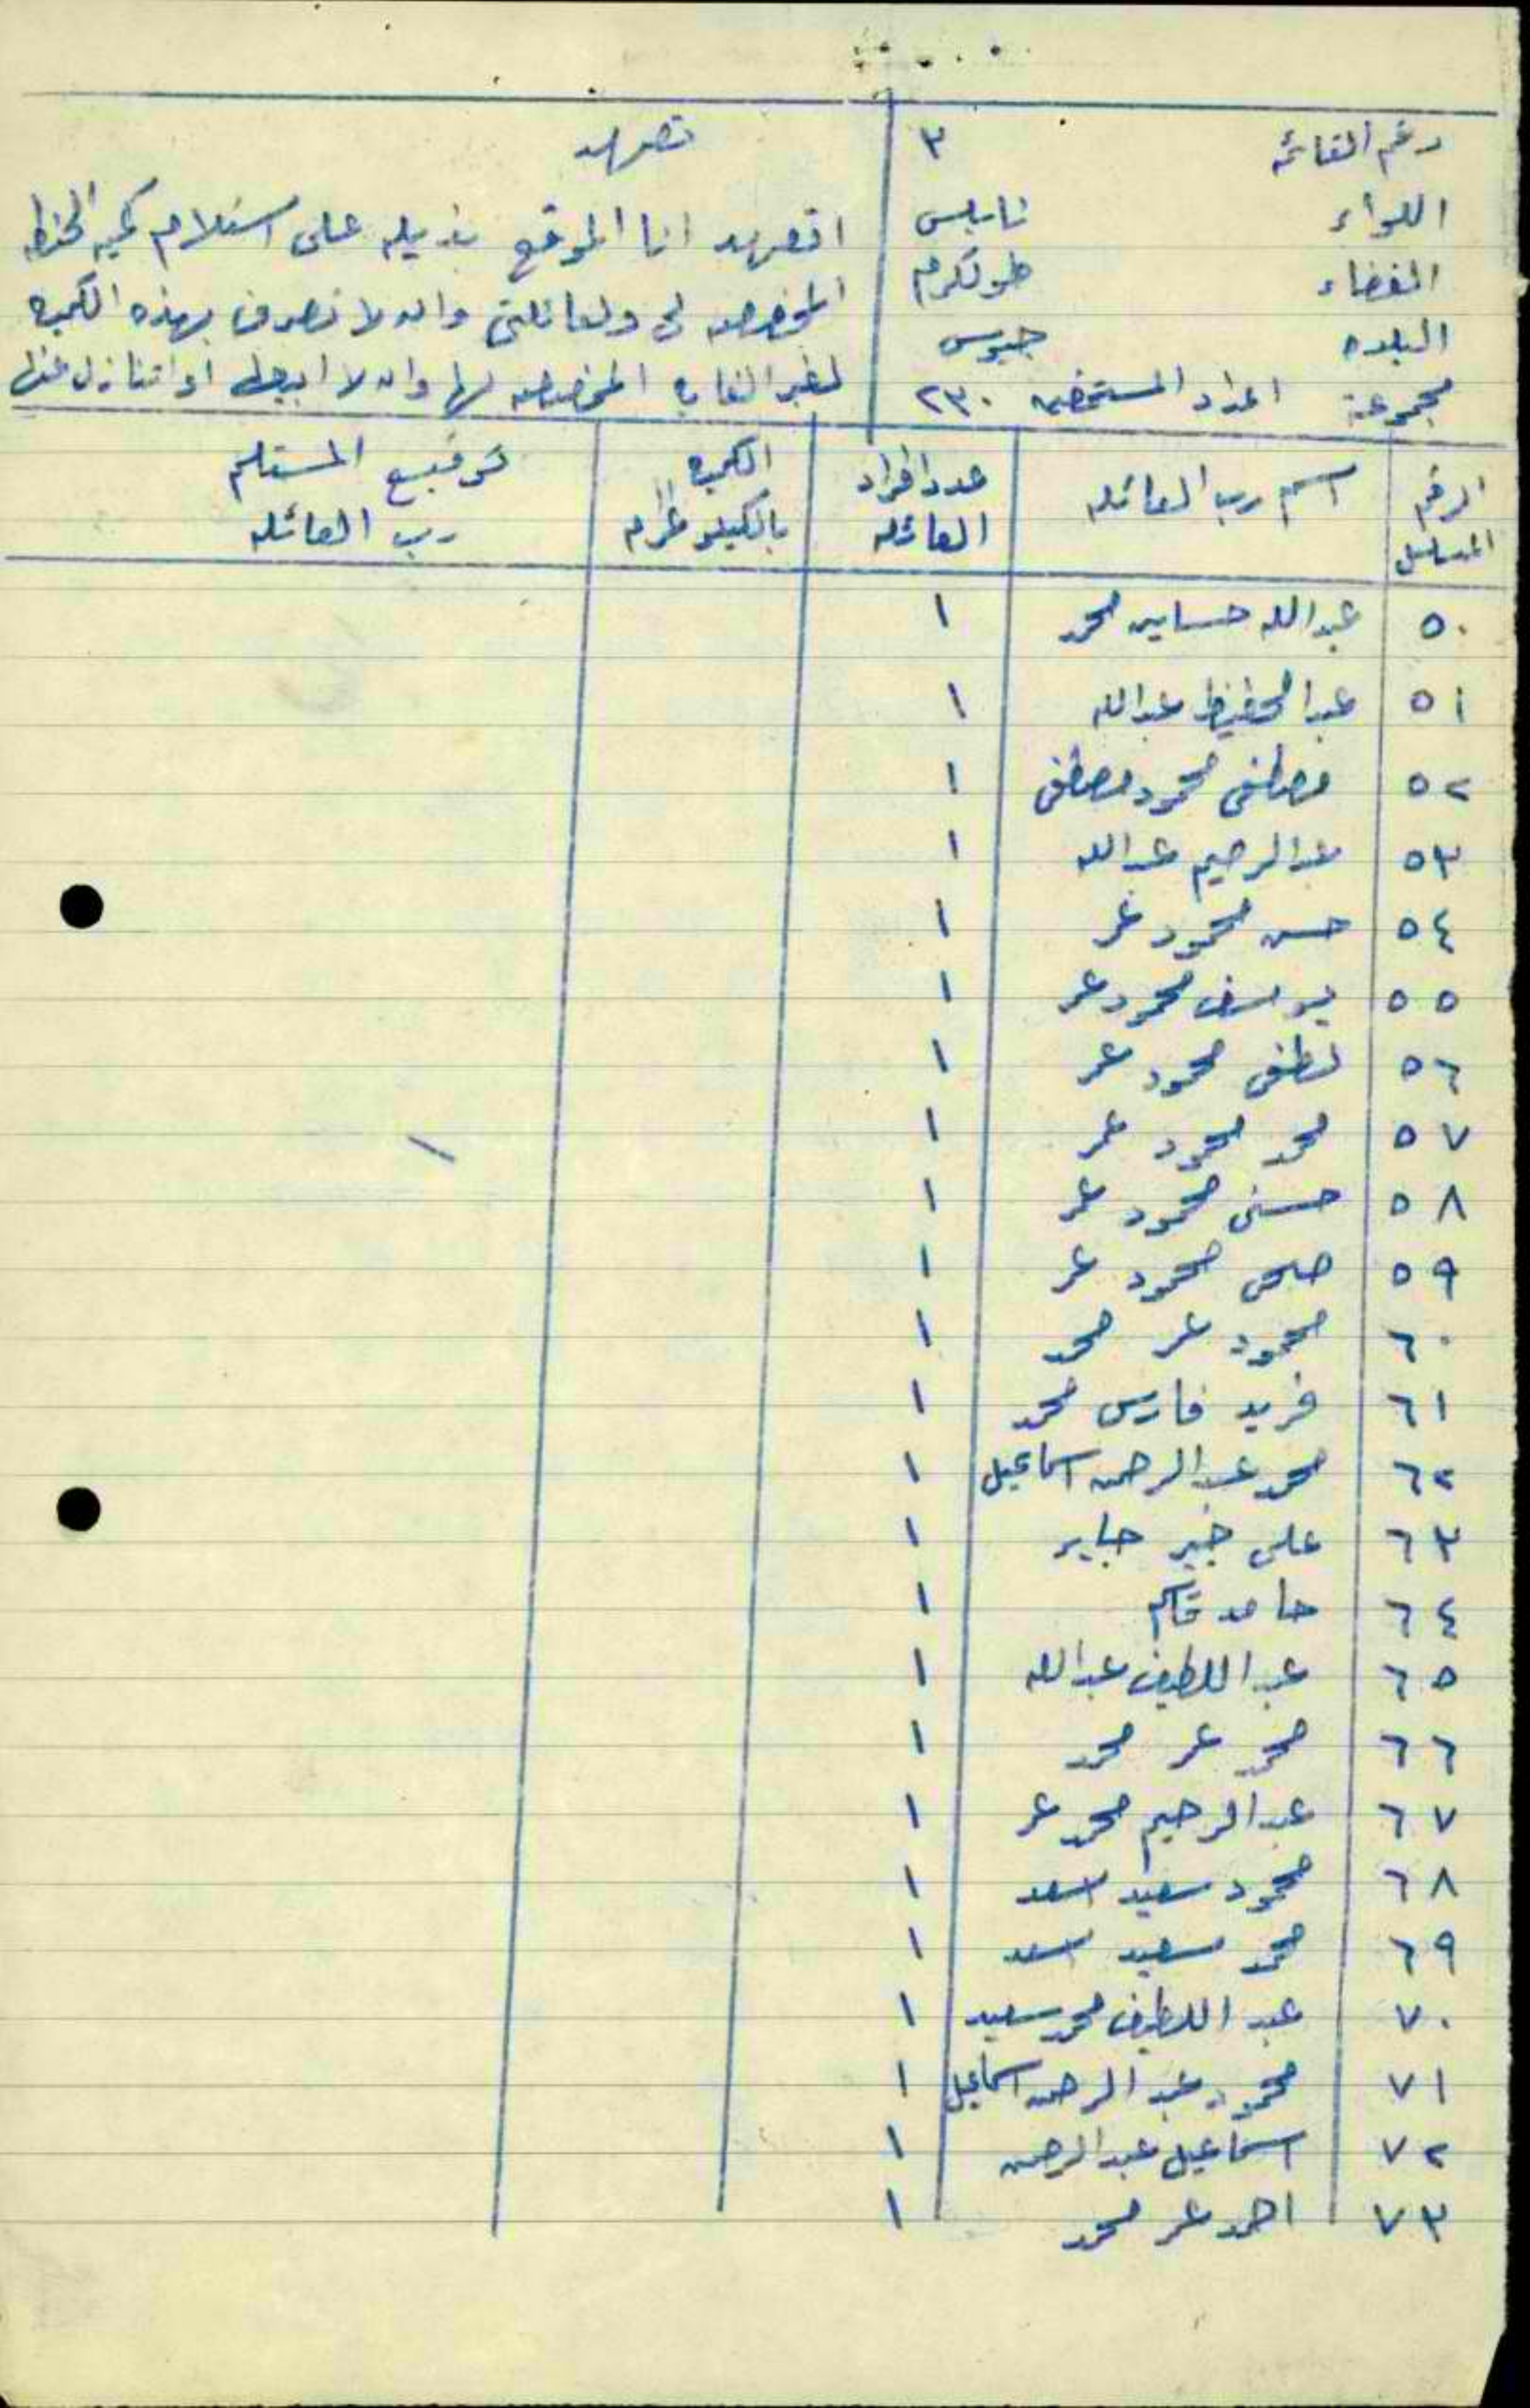 رقم القائمه ٣
اللواء نابلس
القضاء طولكرم
البلده جيوس
مجموعة اعداد المستحقين ٢٣٠
تعهد
اتعهد انا الموقع بذيله على استلام كمية الحنطه
المخصصه لي ولعائلتي وان لا نصرف بهذه الكميه
لغير الغايه المخصصه لها وان لا ابيعها او اتنازل عنها
الرقم المسلسل | اسم رب العائله | عدد افراد العائله | الكميه بالكيلو غرام | توقيع المستلم رب العائله
٥٠ عبدالله حسابن محمد ١
٥١ عبد الحفيظ عبدالله ١
٥٢ مصطفى محمود مصطفى ١
٥٣ عبدالرحيم عبدالله ١
٥٤ حسن محمود عمر ١
٥٥ يوسف محمود عمر ١
٥٦ لطفي محمود عمر ١
٥٧ محمد محمود عمر ١
٥٨ حسني محمود عمر ١
٥٩ صبحي محمود عمر ١
٦٠ محمود عمر محمد ١
٦١ فريد فارس محمد ١
٦٢ محمد عبد الرحمن اسماعيل ١
٦٣ علي خير جابر ١
٦٤ حامد قاسم ١
٦٥ عبد اللطيف عبدالله ١
٦٦ محمد عمر محمد ١
٦٧ عبد الرحيم محمد عمر ١
٦٨ محمود سعيد اسعد ١
٦٩ محمد سعيد اسعد ١
٧٠ عبد اللطيف محمد سعيد ١
٧١ محمود عبد الرحمن اسماعيل ١
٧٢ اسماعيل عبد الرحمن ١
٧٣ احمد عمر محمد ١